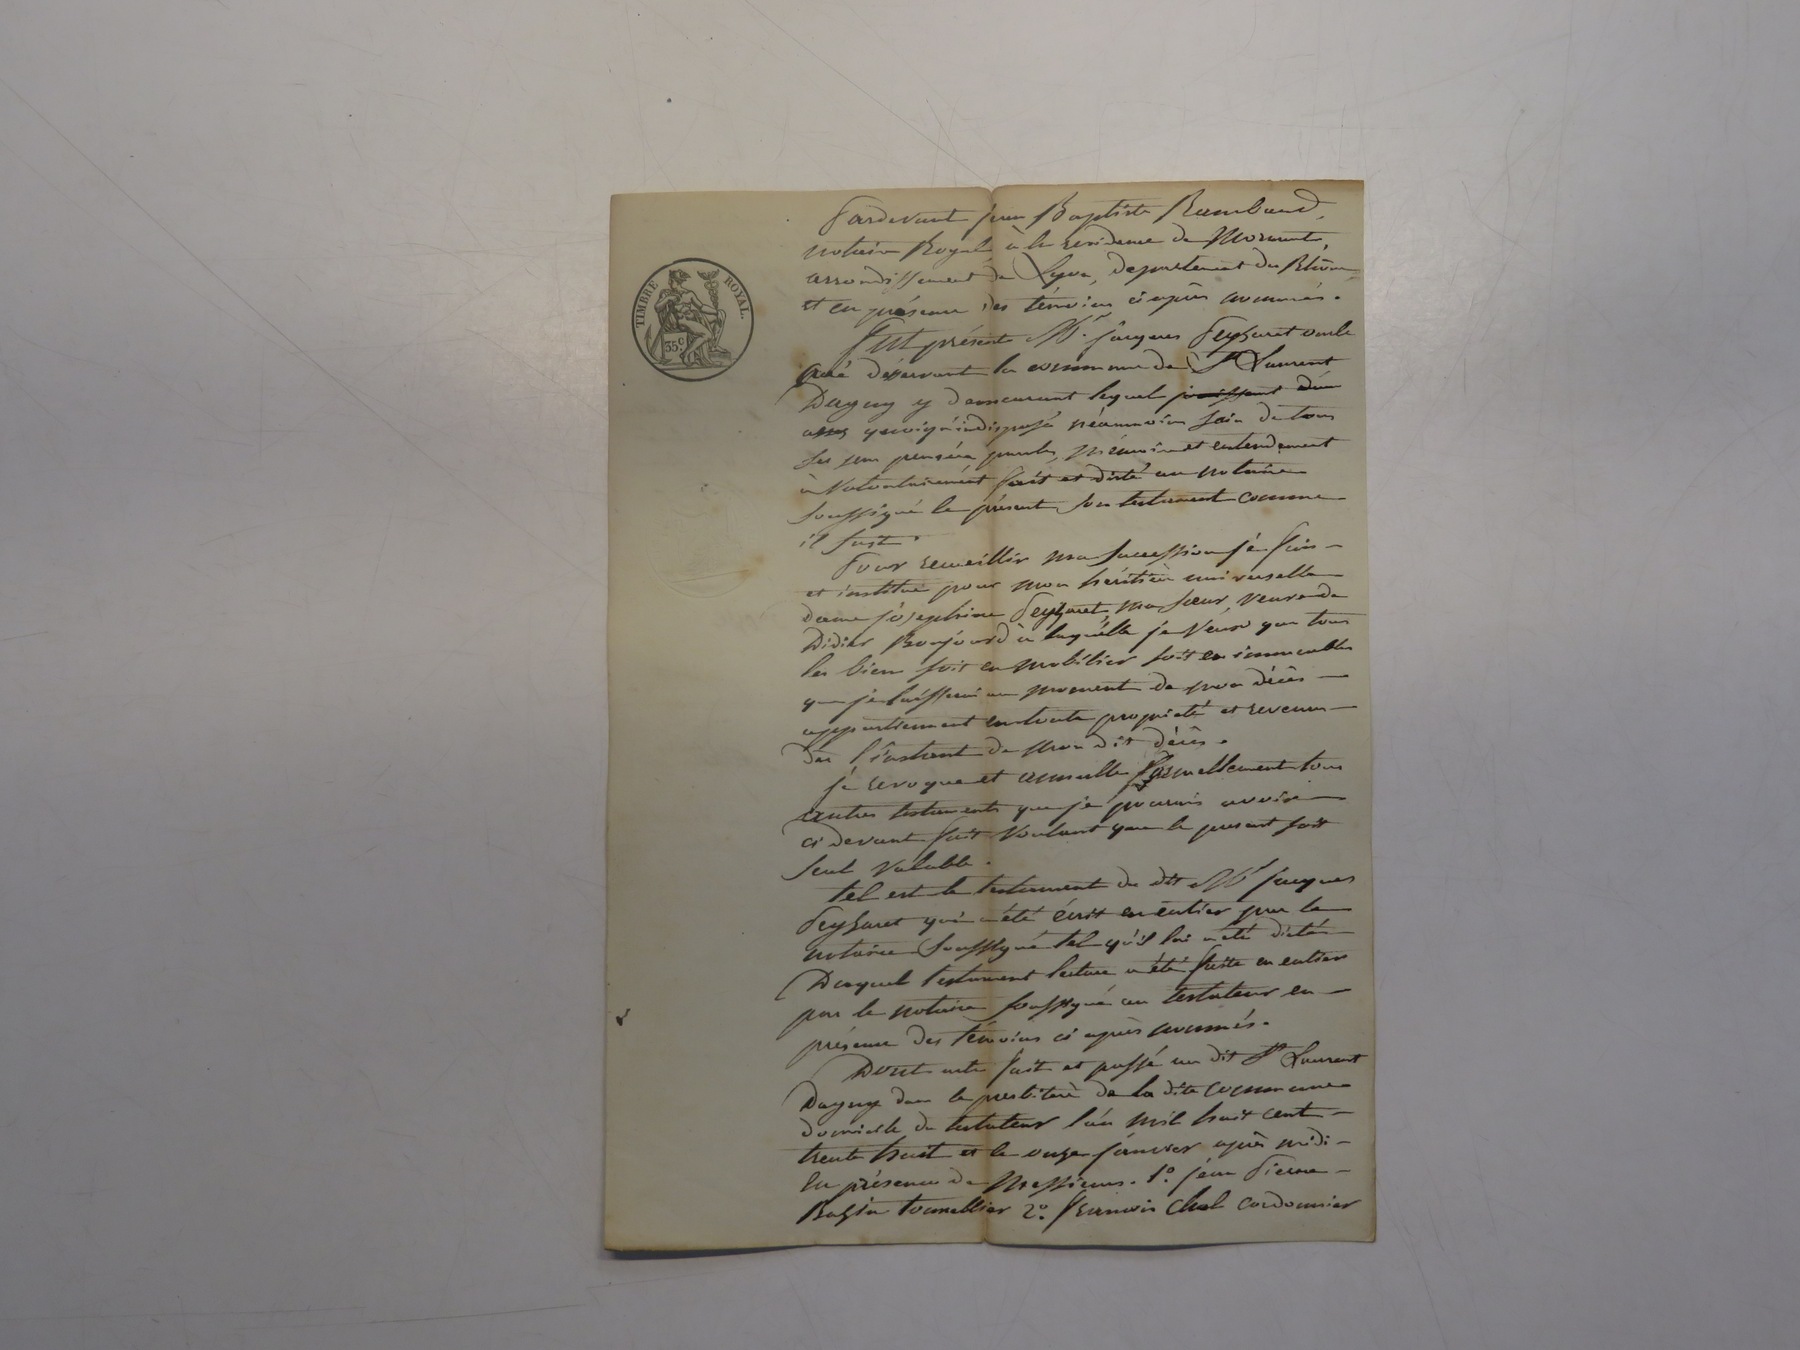 TIMBRE ROYAL.
35c.
Pardevant jean Baptiste Rambaud,
notaire Royal à la residence de Mornant,
arrondissement de Lyon, departement du Rhône
et en présence des témoins ci après nommés.
Fut présent Mr. jacques Peyzaret
curé desservant la commune de St Laurent
Dagny y demeurant lequel jouissant d'un
assez quoiqu'indisposé néanmoins sain de tous
ses sens pensée parole, mémoire et entendement
à Volontairement fait et dicté au notaire
soussigné le présent son testament comme
il suit.
Pour recueillir ma succession je fais
et institue pour mon héritière universelle
dame joséphine Peyzaret, ma sœur, veuve de
Didier Bonjourd à laquelle je Veux que tous
les bien soit en mobilier soit en immeubles
que je laisserai au moment de mon décès
appartiennent en toute propriété et revenus
dès l'instant de mon dit décès.
je revoque et annulle formellement tous
autres testaments que je pourrais avoir
ci devant fait Voulant que le present soit
seul valable.
tel est le testament du dit Mr jacques
Peyzaret qui a été écrit en entier par le
notaire soussigné tel qu'il lui a été dicté
Duquel testament lecture a été faite en entier
par le notaire soussigné au testateur en
présence des témoins ci après nommés.
Dont acte fait et passé au dit St Laurent
Dagny dans le presbitère de la dite commune
domicile du testateur l'an mil huit cent
trente huit et le onze janvier après midi
En présence de Messieurs. 1°. jean Pierre
Bazin tonnellier 2°. François Chol cordonnier